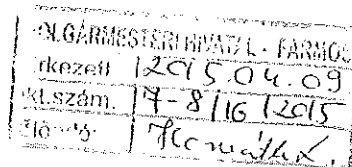 POLGÁRMESTERI HIVATAL - FARMOS
Érkezett 2015.04.09
Ikt.szám. 7-8/16/2015
Előadó: Horváth L.